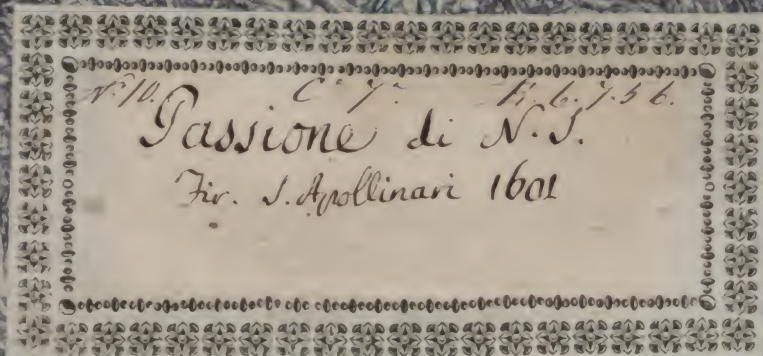 N.º 10. C.º 7.º K. 6. 7. 5 6.
Passione di N. S.
Fir. S. Apollinari 1601